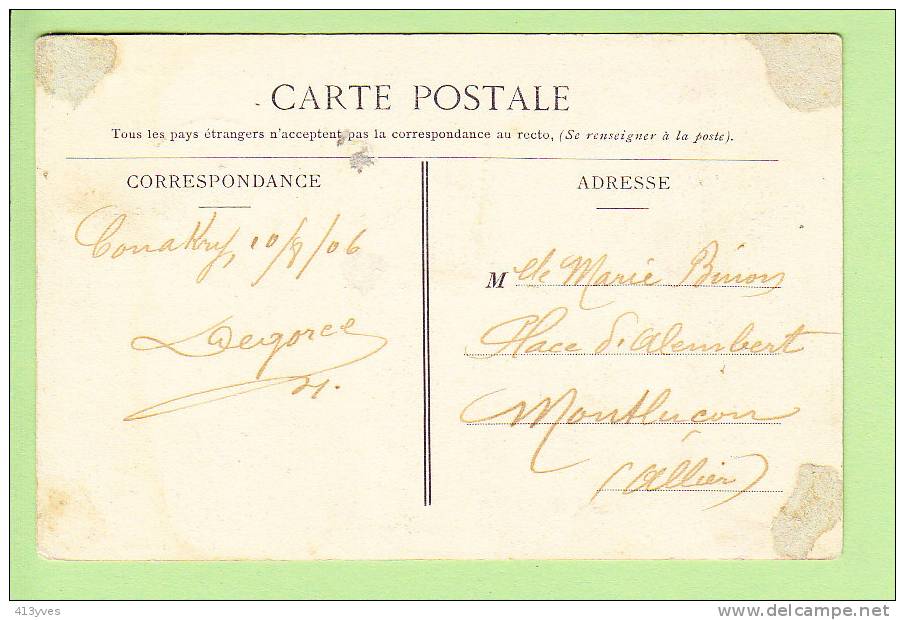 CARTE POSTALE
Tous les pays étrangers n'acceptent pas la correspondance au recto, (Se renseigner à la poste).
CORRESPONDANCE
ADRESSE
Conakry, 10/8/06
Degorce
Mlle Marie Binon
Place d'Alembert
Montluçon
(Allier)
413yves
www.delcampe.net